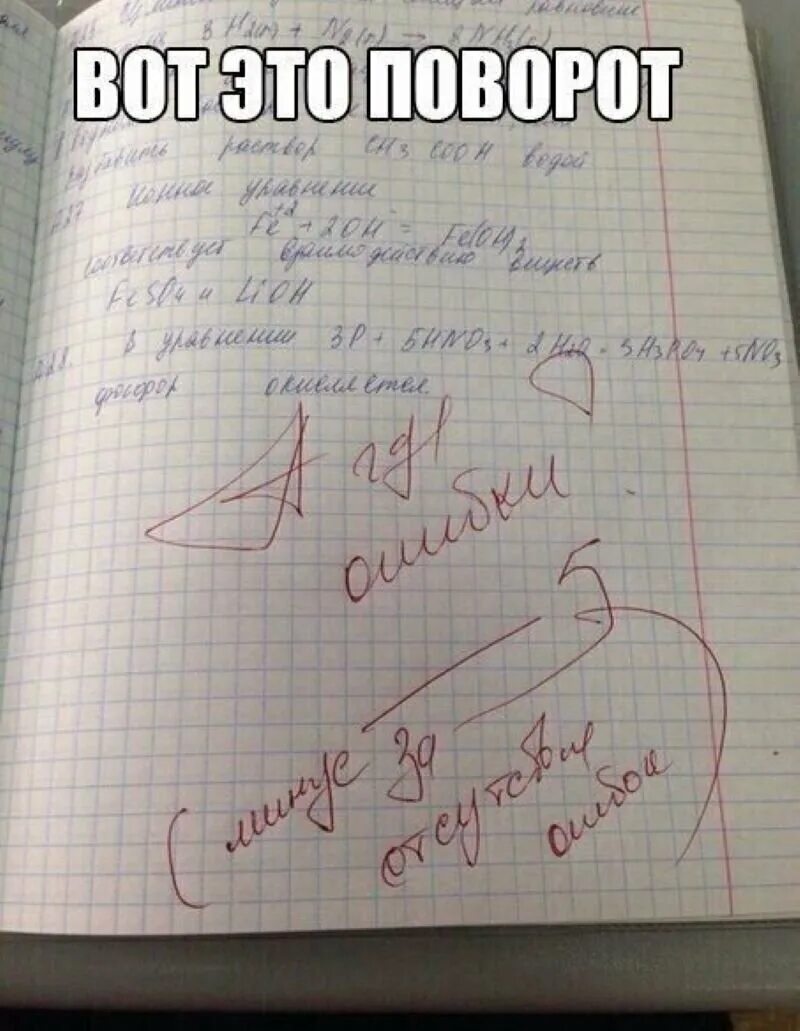 ВОТ ЭТО ПОВОРОТ
3 H2(г) + N2(г) → 2NH3(г)
раствор CH3 COOH водой
Ионное уравнение
Fe+2 + 2OH- = Fe(OH)2
соответствует взаимодействию веществ
FeSO4 и LiOH
В уравнении 3P + 5HNO3 + 2H2O = 3H3PO4 + 5NO
фосфор окисляется.
А где
ошибки?
5-
(минус за
отсутствие
ошибок)